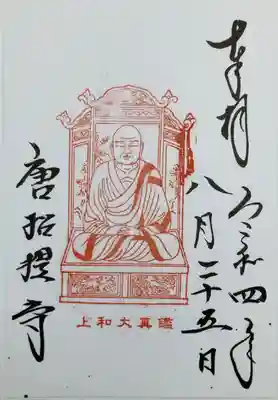 奉拝
令和四年
八月二十五日
唐招提寺
上和大真鑑